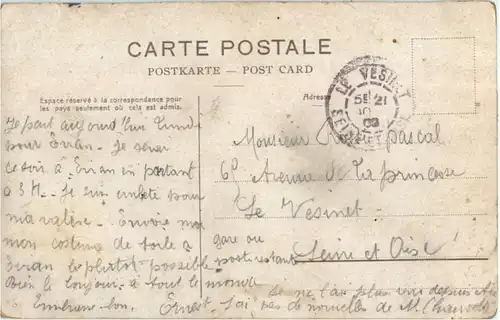 CARTE POSTALE
POSTKARTE — POST CARD
Espace réservé à la correspondance pour
les pays seulement où cela est admis.
Adresse
LE VESINET
21
Je part aujourd'hui lundi
pour Evian. Je serai
ce soir à Evian en partant
à 3 H. Je suis embeté pour
ma valise. Envoie moi
mon costume de toile à
Evian le plutot possible
gare ou
poste restante
Bien le bonjour à tout le monde
Embrasse
Ernest
Monsieur pascal
65 Avenue de La princesse
Le Vesinet
Seine et Oise
Je ne l'ai plus vu depuis
J'ai pas de nouvelles de M.